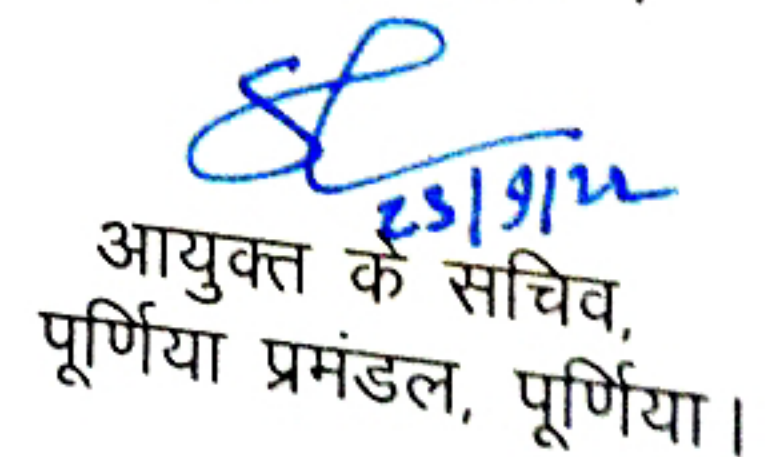 23/9/22
आयुक्त के सचिव,
पूर्णिया प्रमंडल, पूर्णिया।